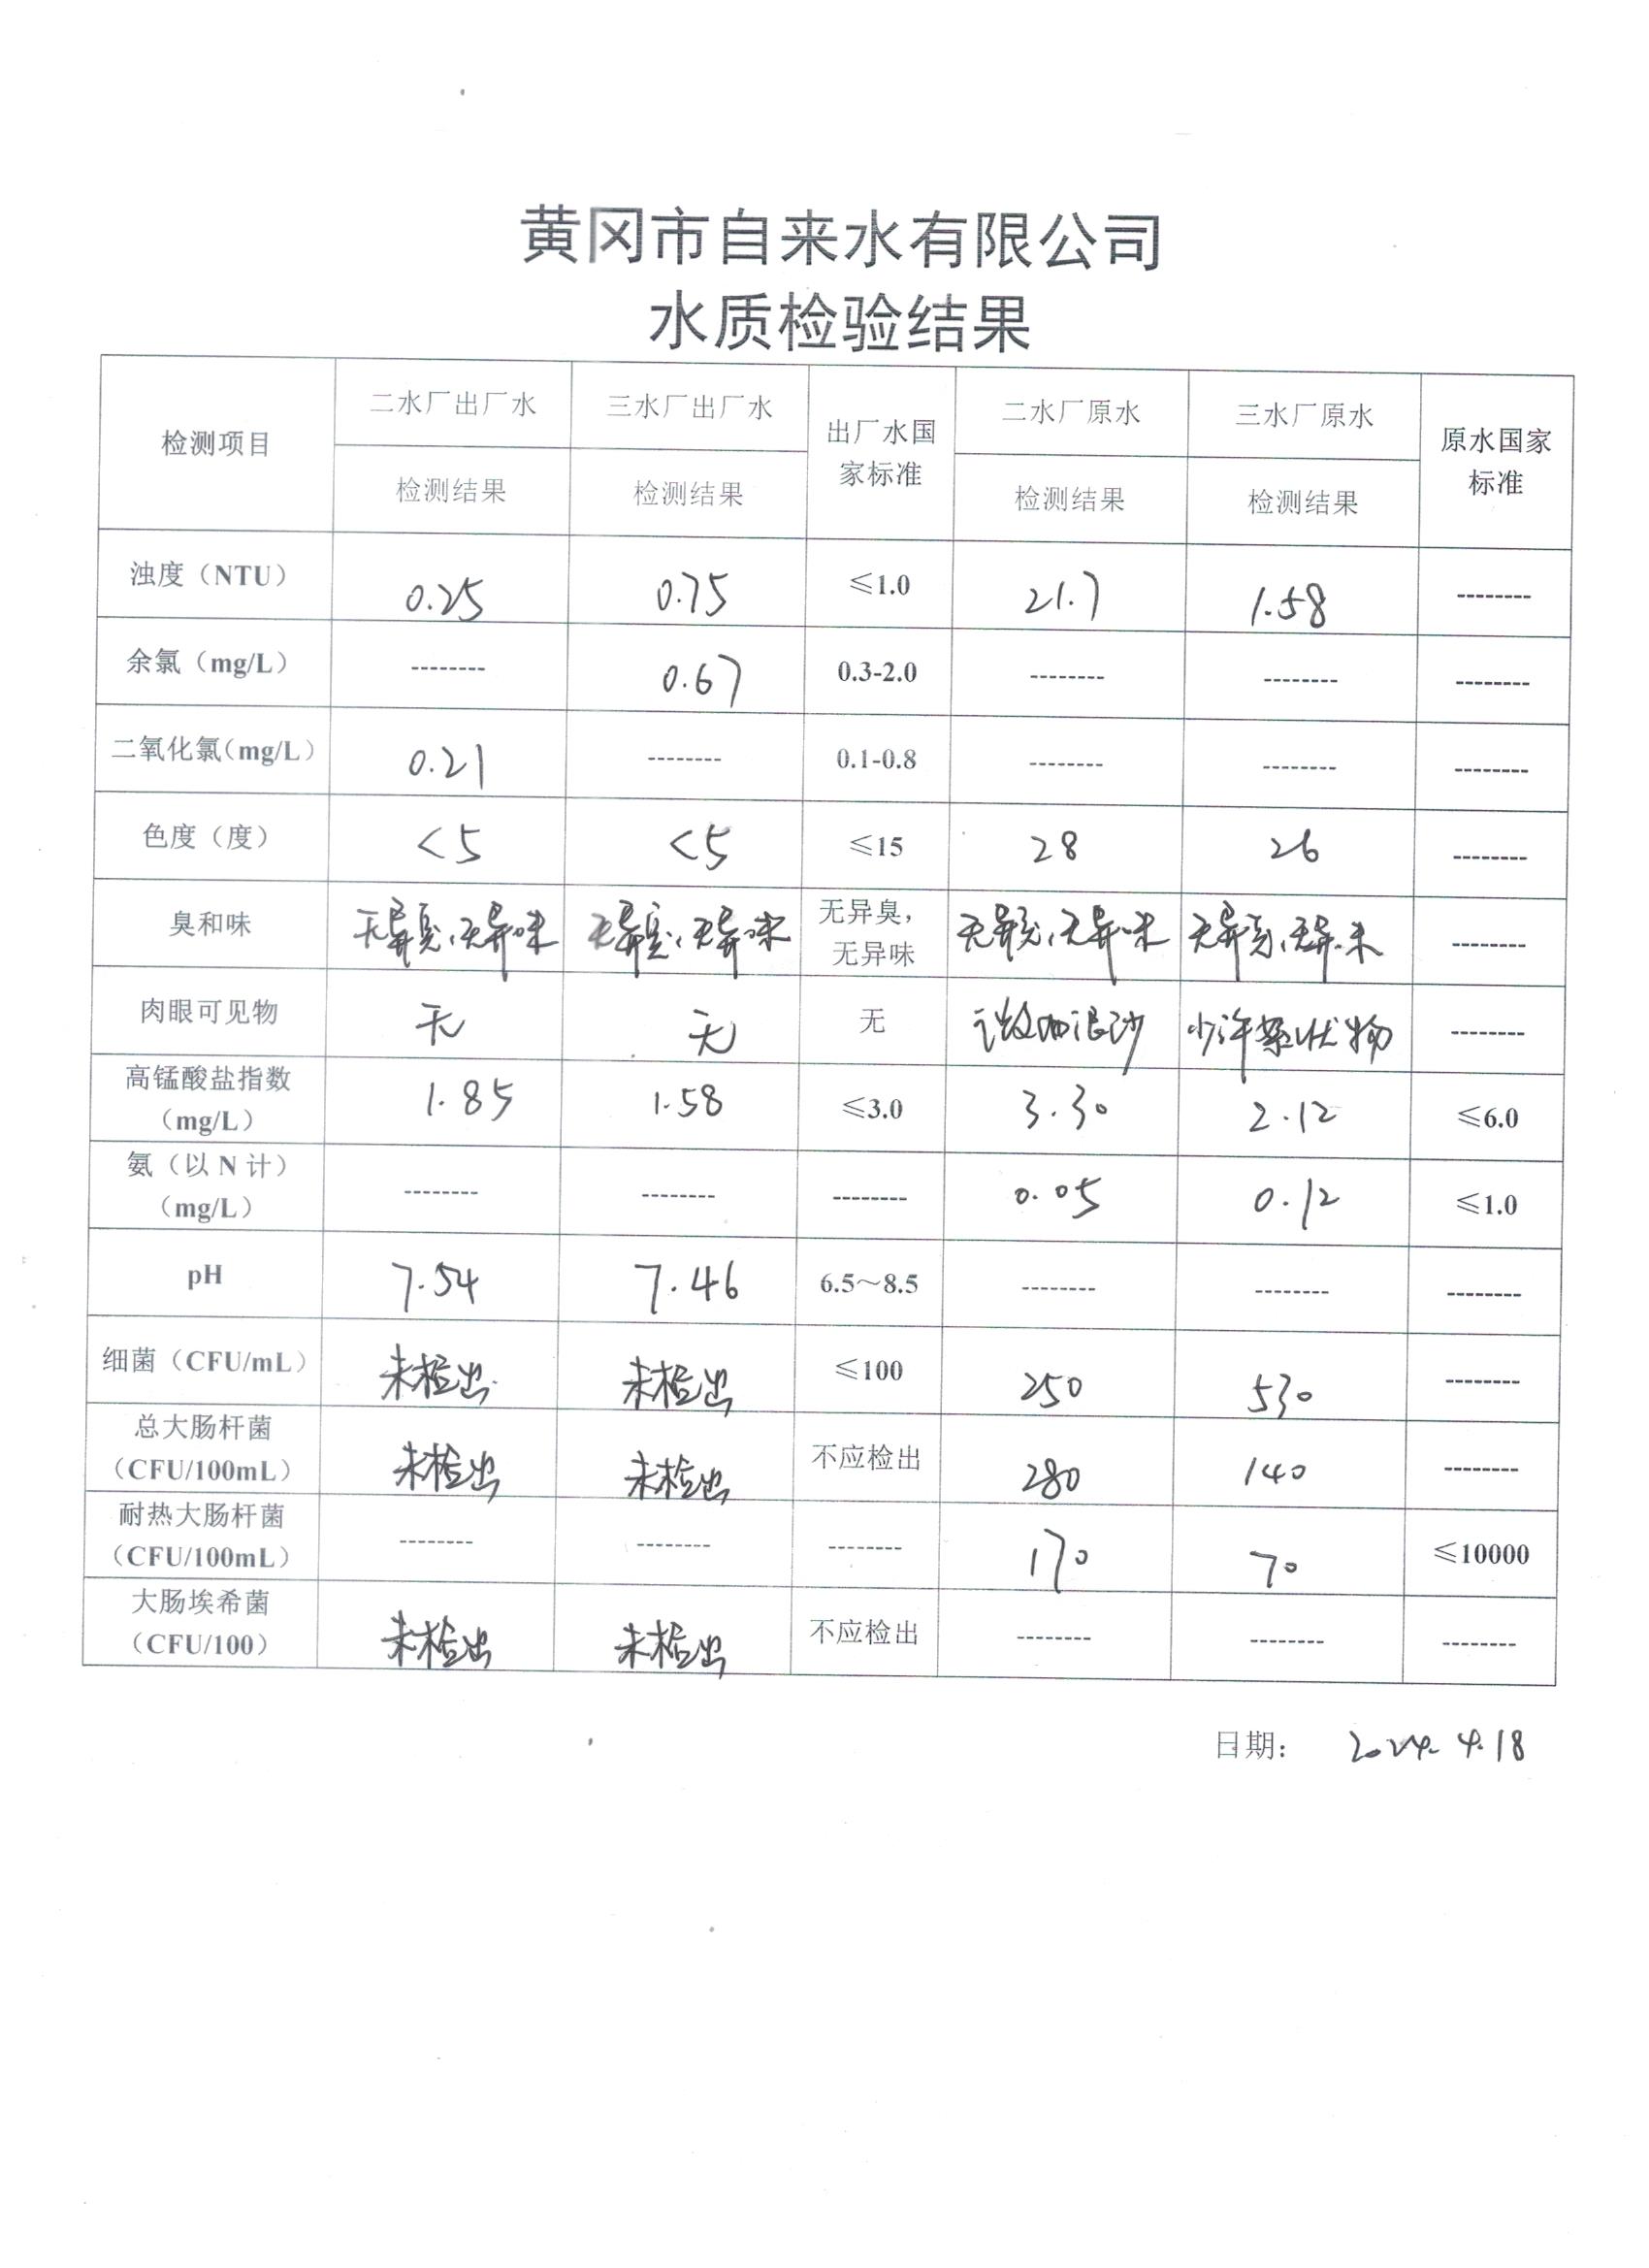 黄冈市自来水有限公司
水质检验结果
检测项目 二水厂出厂水 三水厂出厂水 出厂水国家标准 二水厂原水 三水厂原水 原水国家标准
检测结果 检测结果 检测结果 检测结果
浊度（NTU） 0.25 0.75 ≤1.0 21.7 1.58 --------
余氯（mg/L） -------- 0.67 0.3-2.0 -------- -------- --------
二氧化氯（mg/L） 0.21 -------- 0.1-0.8 -------- -------- --------
色度（度） <5 <5 ≤15 28 26 --------
臭和味 无异臭、无异味 无异臭、无异味 无异臭，无异味 无异臭、无异味 无异臭、无异味 --------
肉眼可见物 无 无 无 微细泥沙 少许絮状物 --------
高锰酸盐指数（mg/L） 1.85 1.58 ≤3.0 3.30 2.12 ≤6.0
氨（以N计）（mg/L） -------- -------- -------- 0.05 0.12 ≤1.0
pH 7.54 7.46 6.5～8.5 -------- -------- --------
细菌（CFU/mL） 未检出 未检出 ≤100 250 530 --------
总大肠杆菌（CFU/100mL） 未检出 未检出 不应检出 280 140 --------
耐热大肠杆菌（CFU/100mL） -------- -------- -------- 170 70 ≤10000
大肠埃希菌（CFU/100） 未检出 未检出 不应检出 -------- -------- --------
日期： 2024.4.18